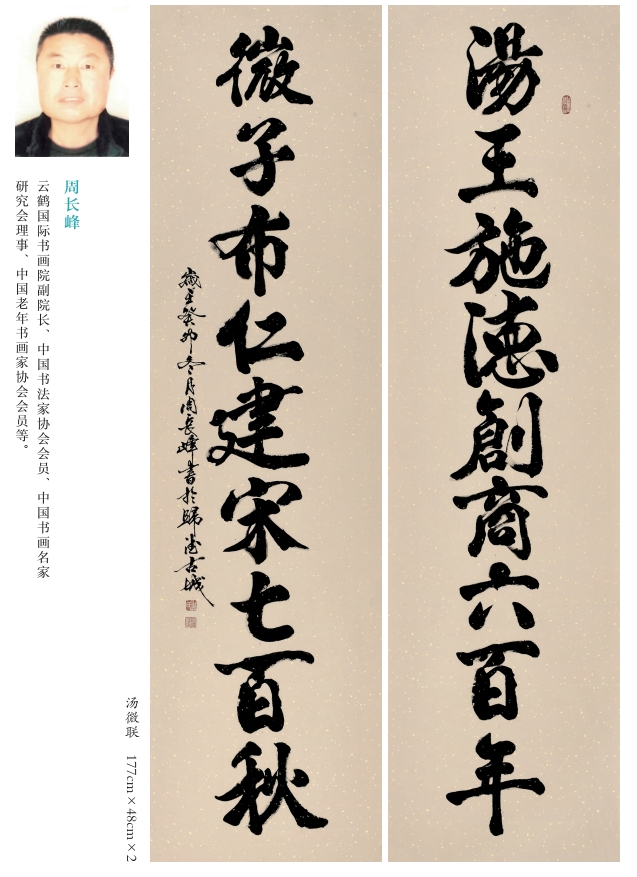 湯王施德創商六百年
微子布仁建宋七百秋
歲在癸卯冬月周長峰書於歸德古城
汤微联 177cm×48cm×2
周长峰
云鹤国际书画院副院长、中国书法家协会会员、中国书画名家
研究会理事、中国老年书画家协会会员等。